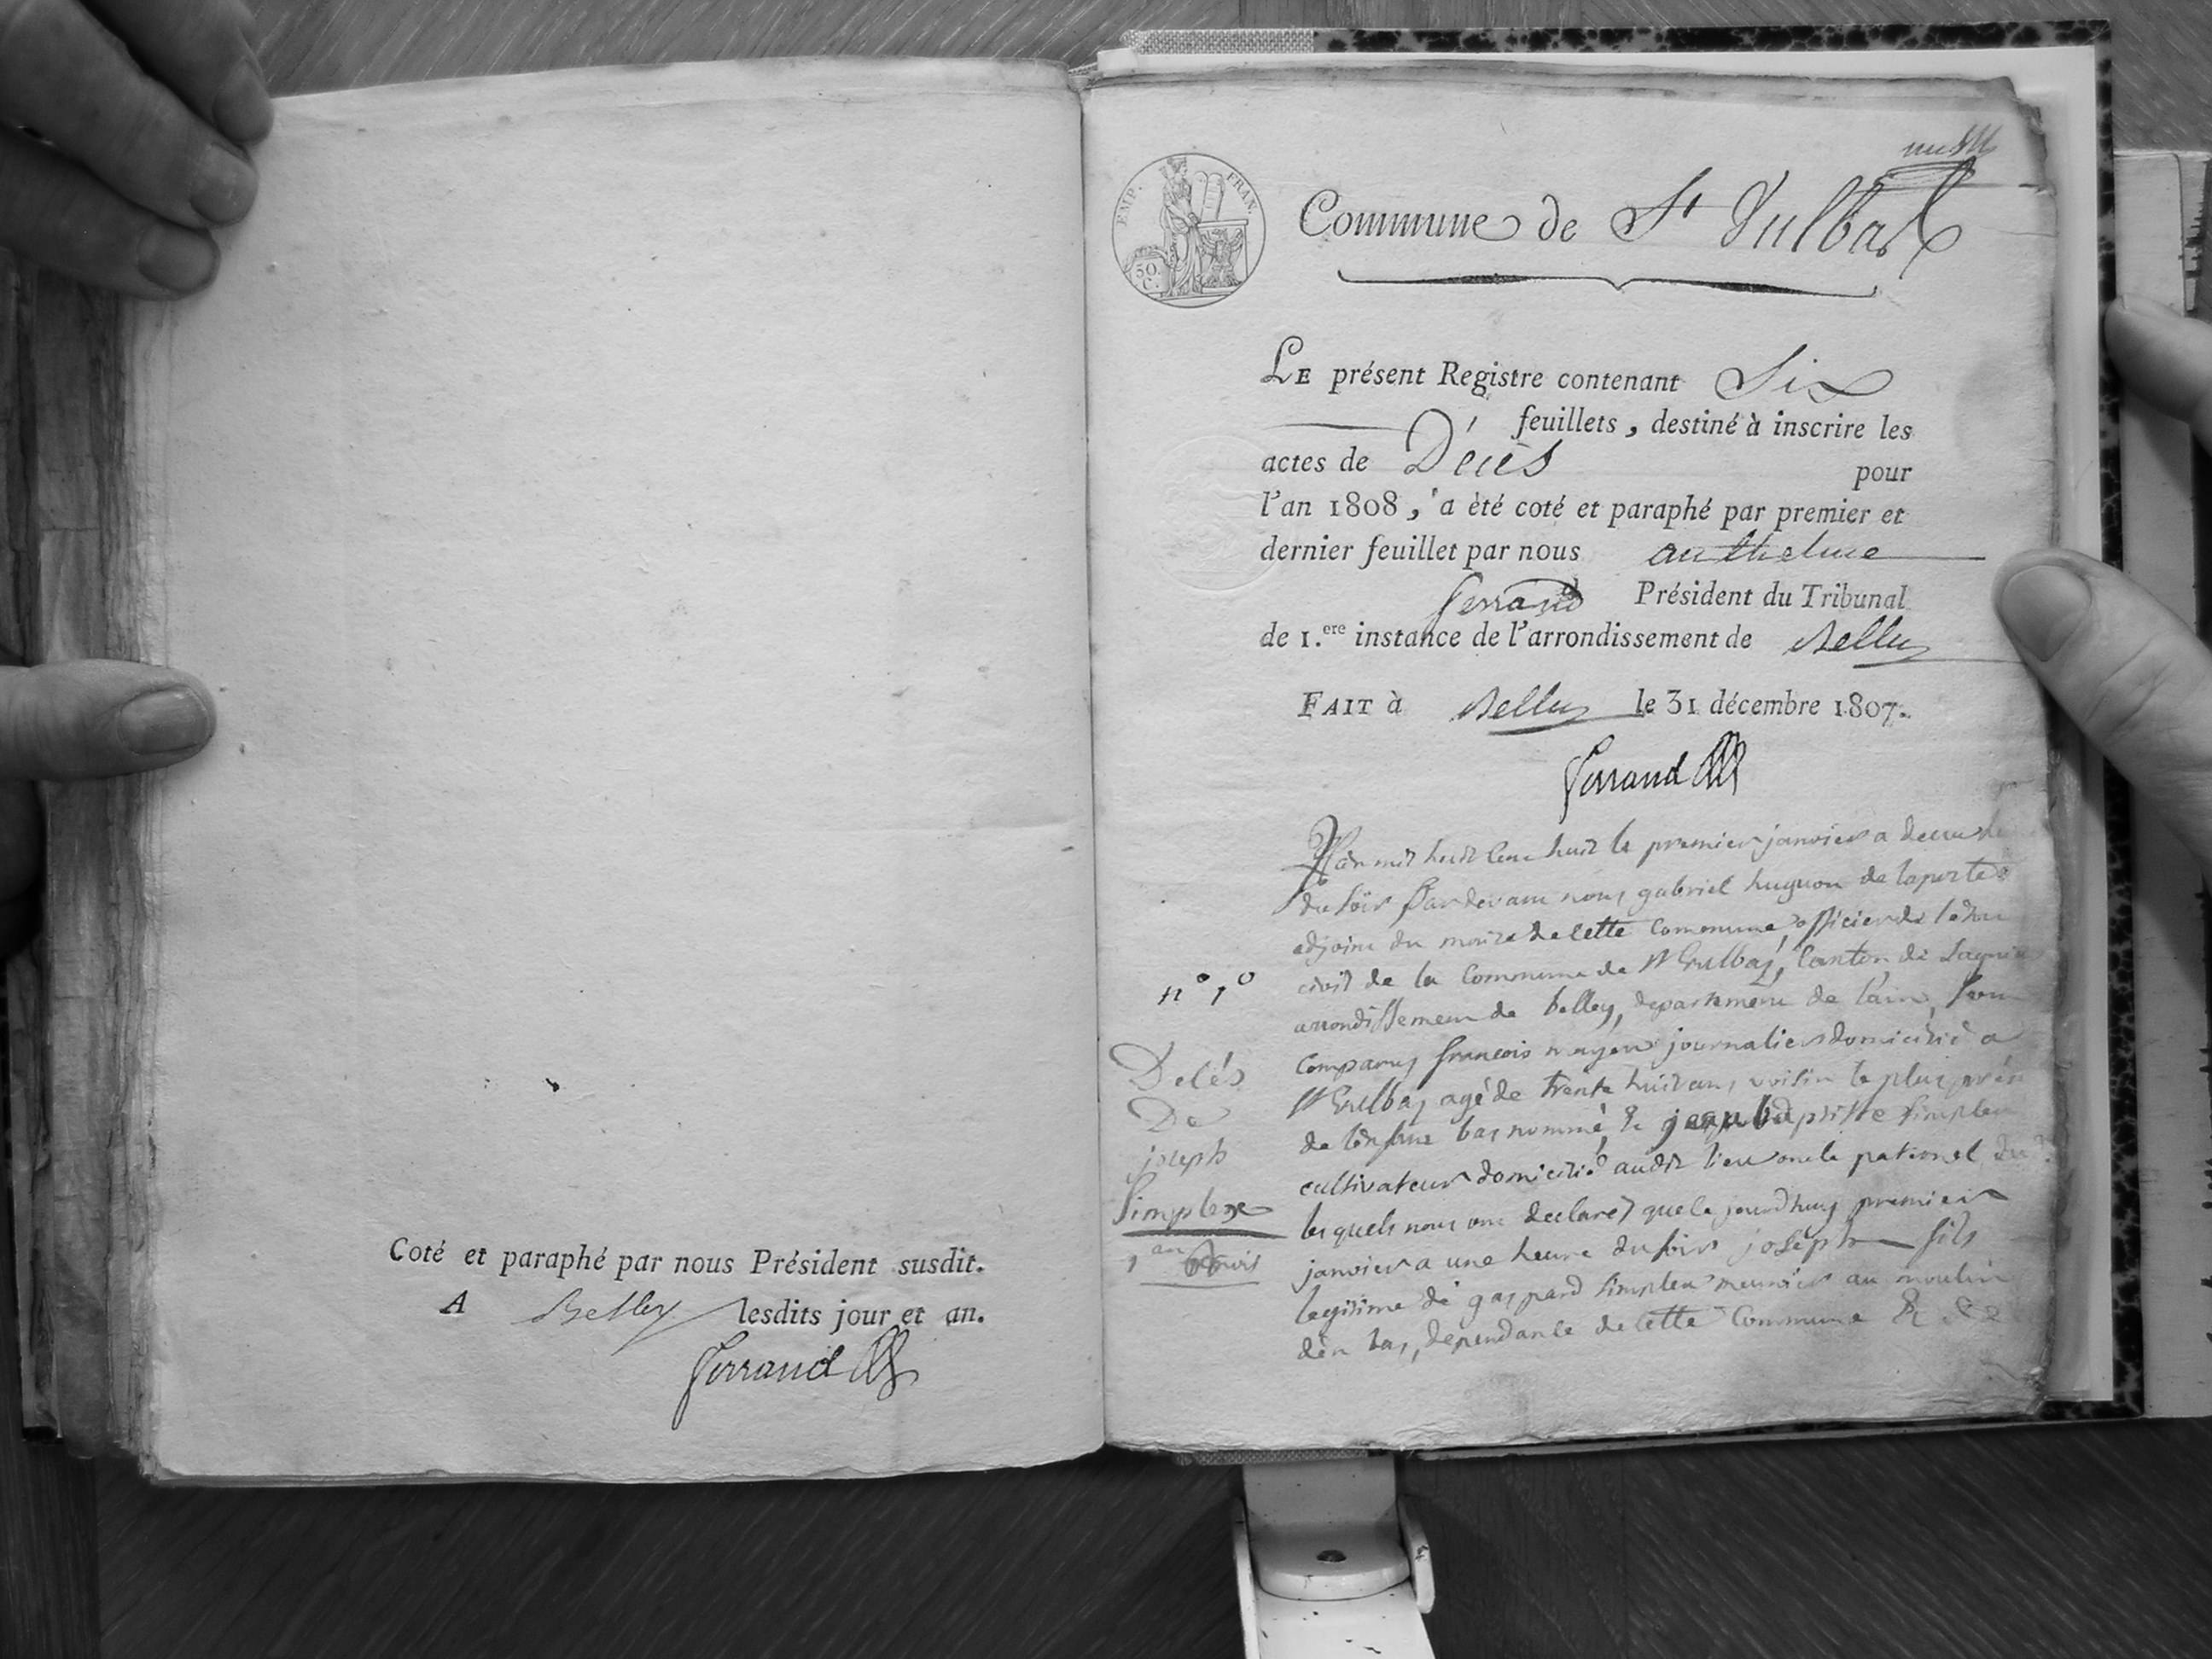 Coté et paraphé par nous Président susdit.
A Belley lesdits jour et an.
Ferrand
EMP. FRAN.
50.
C.
Commune de St Vulbas
LE présent Registre contenant Six
feuillets, destiné à inscrire les
actes de Décès pour
l'an 1808, a èté coté et paraphé par premier et
dernier feuillet par nous anthelme
ferrand Président du Tribunal
de 1.ere instance de l'arrondissement de Belley
FAIT à Belley le 31 décembre 1807.
Ferrand
n° 1°
Decés
De
joseph
Simplex
1 an
L'an mil huit cent huit le premier janvier a deux
du soir Pardevant nous gabriel huguon de laporte
adjoint du maire de cette commune officier de
civil de la Commune de St Vulbas, Canton de Lagnieu
arrondissement de belley, departement de l'ain, sont
comparus francois journalier domicilié a
St Vulbas agé de trente huit ans, voisin le plus
de lenfant bas nommé, & jean baptiste simplex
cultivateur domicilié audit lieu oncle paternel
lesquels nous ont declarés que le jourdhuy premier
janvier a une heure du soir joseph fils
legitime de gaspard simplex meunier au moulin
den bas, dependante de cette Commune & de